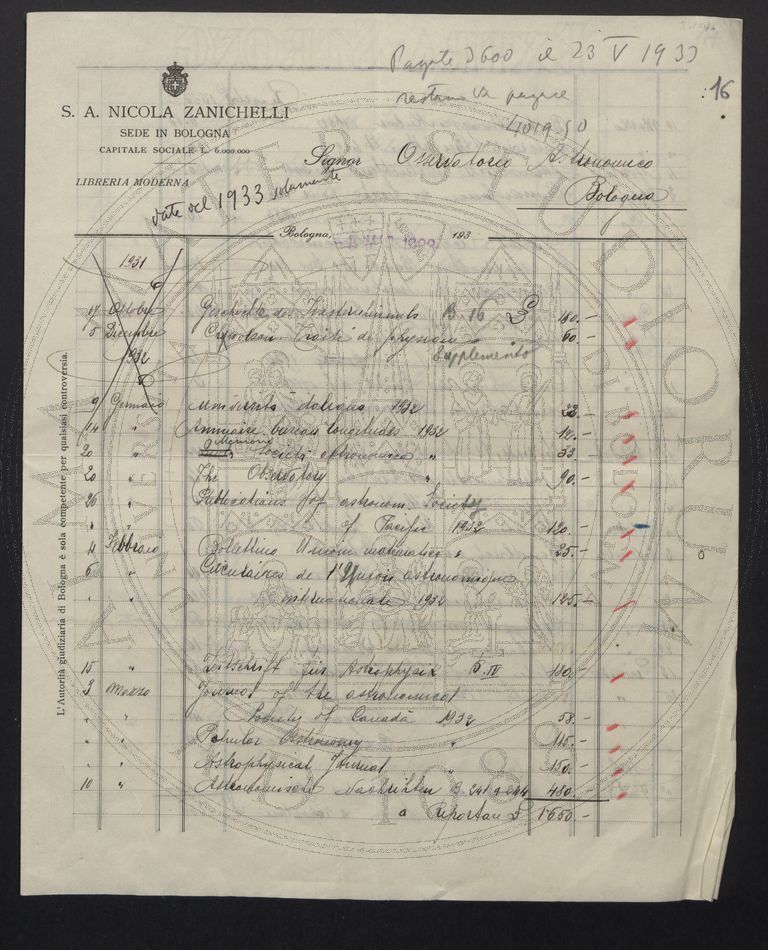 Pagate 3600 il 23 V 1933
restano da pagare
4019.50
: 16
S. A. NICOLA ZANICHELLI
SEDE IN BOLOGNA
CAPITALE SOCIALE L. 6.000.000
LIBRERIA MODERNA
date del 1933 solamente
Signor Osservatorio Astronomico
Bologna
Bologna, 193
1931
17 Ottobre Geschichte des B. 16 180.-
5 Dicembre Chwolson. Traité de physique 60.-
Supplemento
1932
9 Gennaio Università italiana 1932 22.-
14 " Annuaire bureau longitudes 1932 12.-
20 " Memorie Società astronomica " 53.-
20 " The Observatory " 90.-
26 " Publications of astronom. Society
" " of Pacific 1932 120.-
4 Febbraio Bollettino Unione matematica " 25.-
6 " Circulaires de l'Union astronomique
" " internationale 1932 125.-
15 " Zeitschrift für Astrophysik B. IV 130.-
3 Marzo Journal of the astronomical
" " Society of Canadà 1932 58.-
" " Popular Astronomy " 115.-
" " Astrophysical Journal " 150.-
10 " Astronomische Nachrichten B. 241 a 244 480.-
a riportare £ 1650.-
L'Autorità giudiziaria di Bologna è sola competente per qualsiasi controversia.
ALMA MATER STUDIORUM